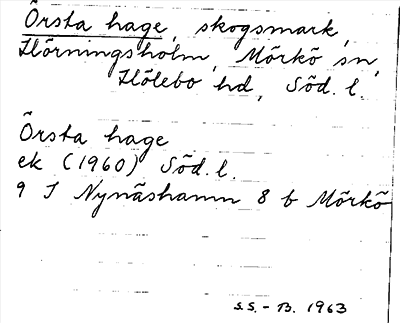 Örsta hage, skogsmark,
Hörningsholm, Mörkö sn,
Hölebo hd, Söd. l.
Örsta hage
ek (1960) Söd. l.
9 I Nynäshamn 8 b Mörkö
S.S. - B. 1963